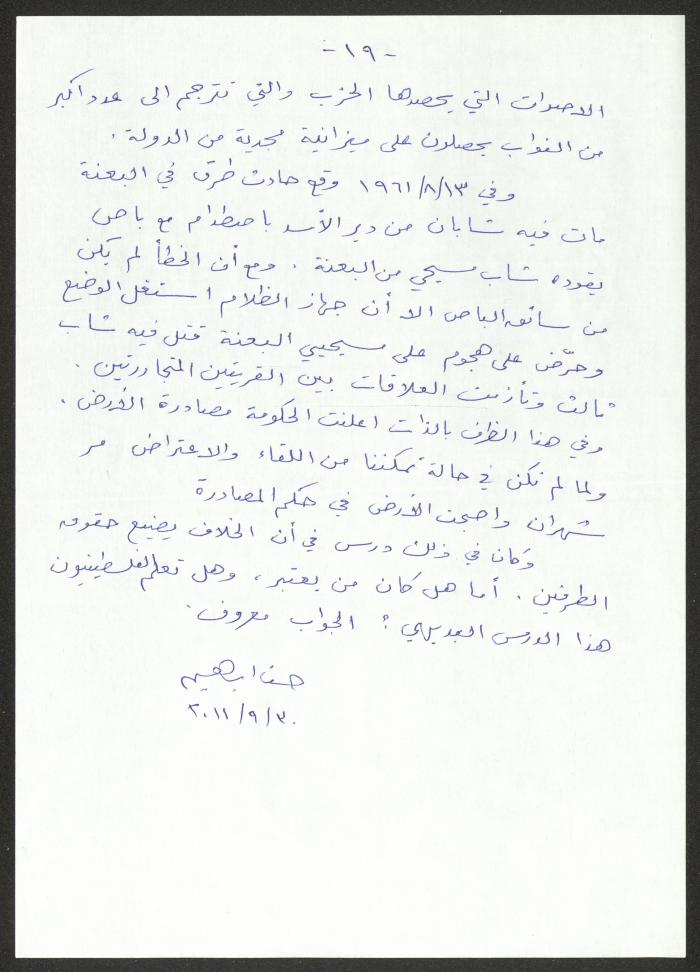 -١٩-
الاصوات التي يحصدها الحزب والتي تترجم الى عدد اكبر
من النواب يحصلون على ميزانية مجدية من الدولة .
وفي ١٩٦١/٨/١٣ وقع حادث طرق في البعنة
مات فيه شابان من دير الأسد باصطدام مع باص
يقوده شاب مسيحي من البعنة . ومع أن الخطأ لم يكن
من سائق الباص الا أن جهاز الظلام استغل الوضع
وحرّض على هجوم على مسيحيي البعنة قتل فيه شاب
ثالث وتأزمت العلاقات بين القريتين المتجاورتين .
وفي هذا الظرف بالذات اعلنت الحكومة مصادرة الأرض .
ولما لم نكن في حالة تمكننا من اللقاء والاعتراض مر
شهران واصبحت الأرض في حكم المصادرة
وكان في ذلك درس في أن الخلاف يضيع حقوق
الطرفين . أما هل كان من يعتبر ، وهل تعلم الفلسطينيون
هذا الدرس البديهي ؟ الجواب معروف .
حنا ابراهيم
٢٠١١/٩/٣٠